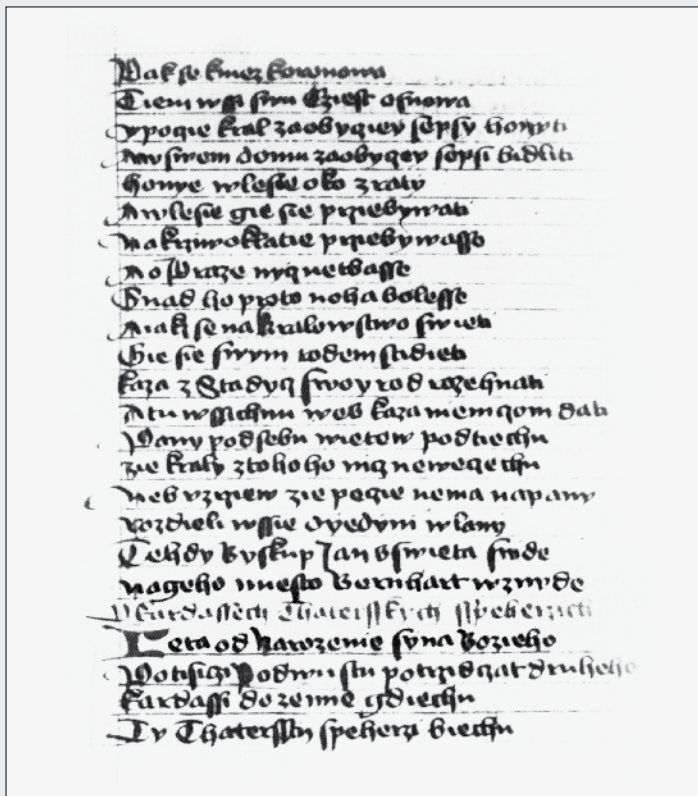 Pak se kniez kowanowa
Tiem wssi swu Cziest osnowa
ypogie kral zaobyqiey sepsy honyti
Aw swem domu zaobyqey sepsi bidliti
honye wlesie oko zraty
Awlesie gie sie prziebywati
Nakrziwoklatie prziebywasse
Ao Praze nyq netbasse
Snad ho proto noha bolesse
Aiak se nakralowstwo swieti
Gie sie swym rodem stidieti
kaza z Stadycz swoy rod rozehnati
Atu wssichnu wes kaza niemczom dati
Pany podsebu nietow podtiechu
zie kraly ztohoho nicz newegechu
neb vzrziew zie pogie nema napany
rozdieli wssie dyedyni wlany
Tehdy Byskup Jan sswieta snide
nageho miesto Bernhart wznyde
O kardassech Thatersskych sspeherzich
Leta od Narozenie syna Bozieho
Potisiczi Podwustu potrzidczat druheho
kardassi dozemie gdiechu
Ty Thaterssti speherzi biechu